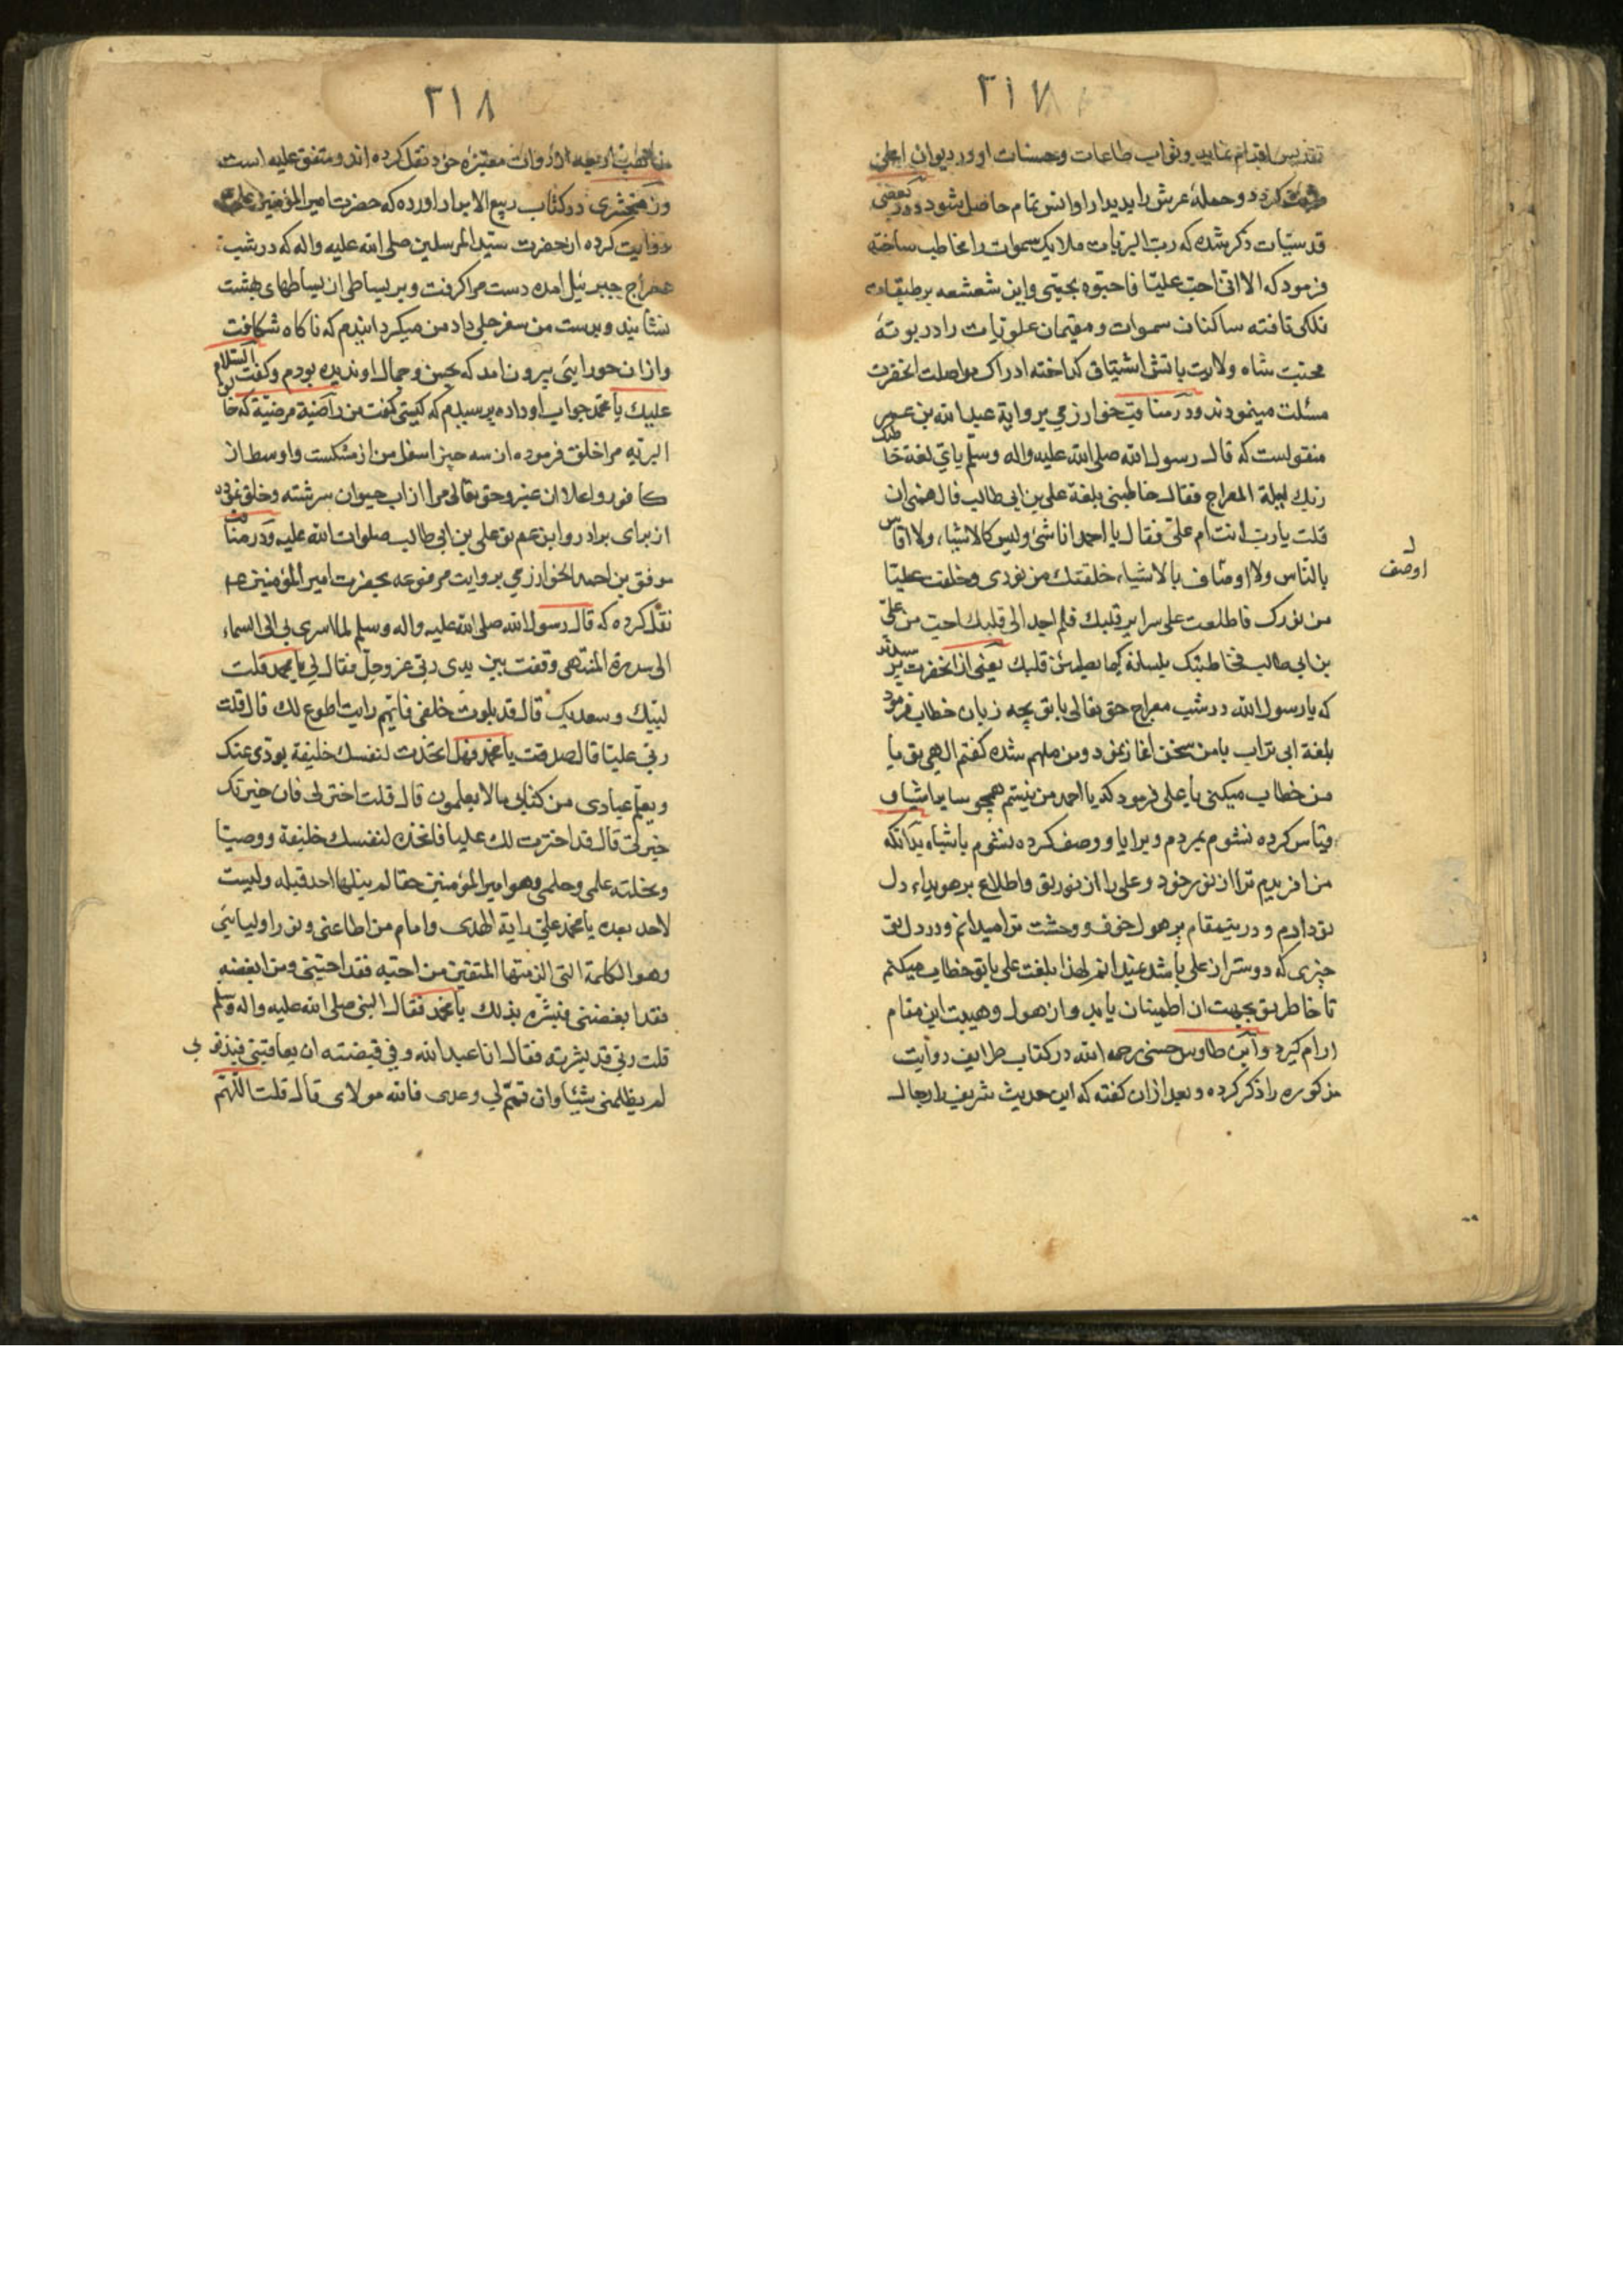 ٣١٧
تقدیس اقدام نمایید وثواب طاعات وحسنات او در دیوان اعلی
کردد وحملهٔ عرش را بدیدار او انس تمام حاصل شود ودر بعضی
قدسیّات ذکر شده که ربّ البریّات ملایک سموات را مخاطب ساخته
فرمود که الا انّی احبّ علیّا فاحبّوه بحبّی واین شعشعه بر طبقات
فلکی تافته ساکنان سموات ومقیمان علویّات را در بوتهٔ
محبّت شاه ولایت باتش اشتیاق کداخته ادراک مواصلت انحضرت
مسئلت مینمودند ودر مناقب خوارزمی بروایة عبد الله بن عمر
منقولست که قال رسول الله صلی الله علیه واله وسلّم بای لغة خاطبک
ربّک لیلة المعراج فقال خاطبنی بلغة علی بن ابی طالب فالهمنی ان
قلت یا ربّ انت ام علیّ فقال یا احمد انا شئ ولیس کالاشیاء ولا اقاس
بالنّاس ولا اوصف بالاشیاء خلقتک من نوری وخلقت علیّا
اوصف
من نورک فاطلعت علی سرایر قلبک فلم اجد الی قلبک احبّ من علیّ
بن ابی طالب فخاطبتک بلسانه کیما یطمئن قلبک یعنی از انحضرت پرسیدند
که یا رسول الله در شب معراج حق تعالی با تو بچه زبان خطاب فرمود
بلغة ابی تراب با من سخن اغاز نمود ومن ملهم شده کفتم الهی تو با
من خطاب میکنی یا علی فرمود که یا احمد من نیستم همچو سایر اشیا و
قیاس کرده نشوم بمردم وبرایا ووصف کرده نشوم باشباه بدانکه
من افریدم ترا از نور خود وعلی را از نور تو واطلاع بر هویداء دل
تو دارم ودرینمقام پر هول خوف ووحشت ترا میدانم ودر دل تو
چیزی که دوستر از علی باشد نمیدانم لهذا بلغت علی با تو خطاب میکنم
تا خاطر تو بجهت ان اطمینان یابد واز هول وهیبت این مقام
ارام کیرد وابن طاوس حسنی رحمه الله در کتاب طرایف روایت
مذکوره را ذکر کرده وبعد از ان کفته که این حدیث شریف را رجال
٣١٨
مذاهب اربعه از روات معتبرهٔ خود نقل کرده اند ومتفق علیه است
وزمخشری در کتاب ربیع الابرار اورده که حضرت امیر المؤمنین علی
روایت کرده از حضرت سیّد المرسلین صلی الله علیه واله که در شب
معراج جبرئیل امده دست مرا کرفت وبر بساطی از بساطهای بهشت
نشانید وبدست من سفرجلی داد من میکردانیدم که ناکاه شکافت
وازان حورایی بیرون امد که بحسن وجمال او ندیده بودم وکفت السّلام
علیک یا محمّد جواب او داده پرسیدم که کیستی کفت من راضیة مرضیّة که خالق
البریّه مرا خلق فرموده از سه چیز اسفل من از مشکست واوسط از
کافور واعلا از عنبر وحق تعالی مرا از اب حیوان سرشته وخلق نموده
از برای برادر وابن عم تو علی بن ابی طالب صلوات الله علیه ودر مناقب
موفق بن احمد الخوارزمی بروایت مرفوعه بحضرت امیر المؤمنین
نقل کرده که قال رسول الله صلی الله علیه واله وسلم لما اسری بی الی السماء
الی سدرة المنتهی وقفت بین یدی ربّی عز وجلّ فقال لی یا محمد قلت
لبیّک وسعدیک قال قد بلوت خلقی فایّهم رایت اطوع لک قال قلت
ربّی علیّا قال صدقت یا محمّد فهل اتخذت لنفسک خلیفة یودّی عنک
ویعلم عبادی من کتابی ما لا یعلمون قال قلت اختر لی فان خیرتک
خیرتی قال قد اخترت لک علیا فاتخذه لنفسک خلیفة ووصیّا
ونحلته علمی وحلمی وهو امیر المؤمنین حقا لم ینلها احد قبله ولیست
لاحد بعده یا محمّد علیّ رایة الهدی وامام من اطاعنی ونور اولیائی
وهو الکلمة التی الزمتها المتقین من احبّه فقد احبّنی ومن ابغضه
فقد ابغضنی فبشّره بذلک یا محمّد فقال النبی صلی الله علیه واله وسلم
قلت ربّی قد بشّرته فقال انا عبد الله وفی قبضته ان یعاقبنی فبذنوبی
لم یظلمنی شیئا وان تمّم لی وعدی فالله مولای قال قلت اللّهم